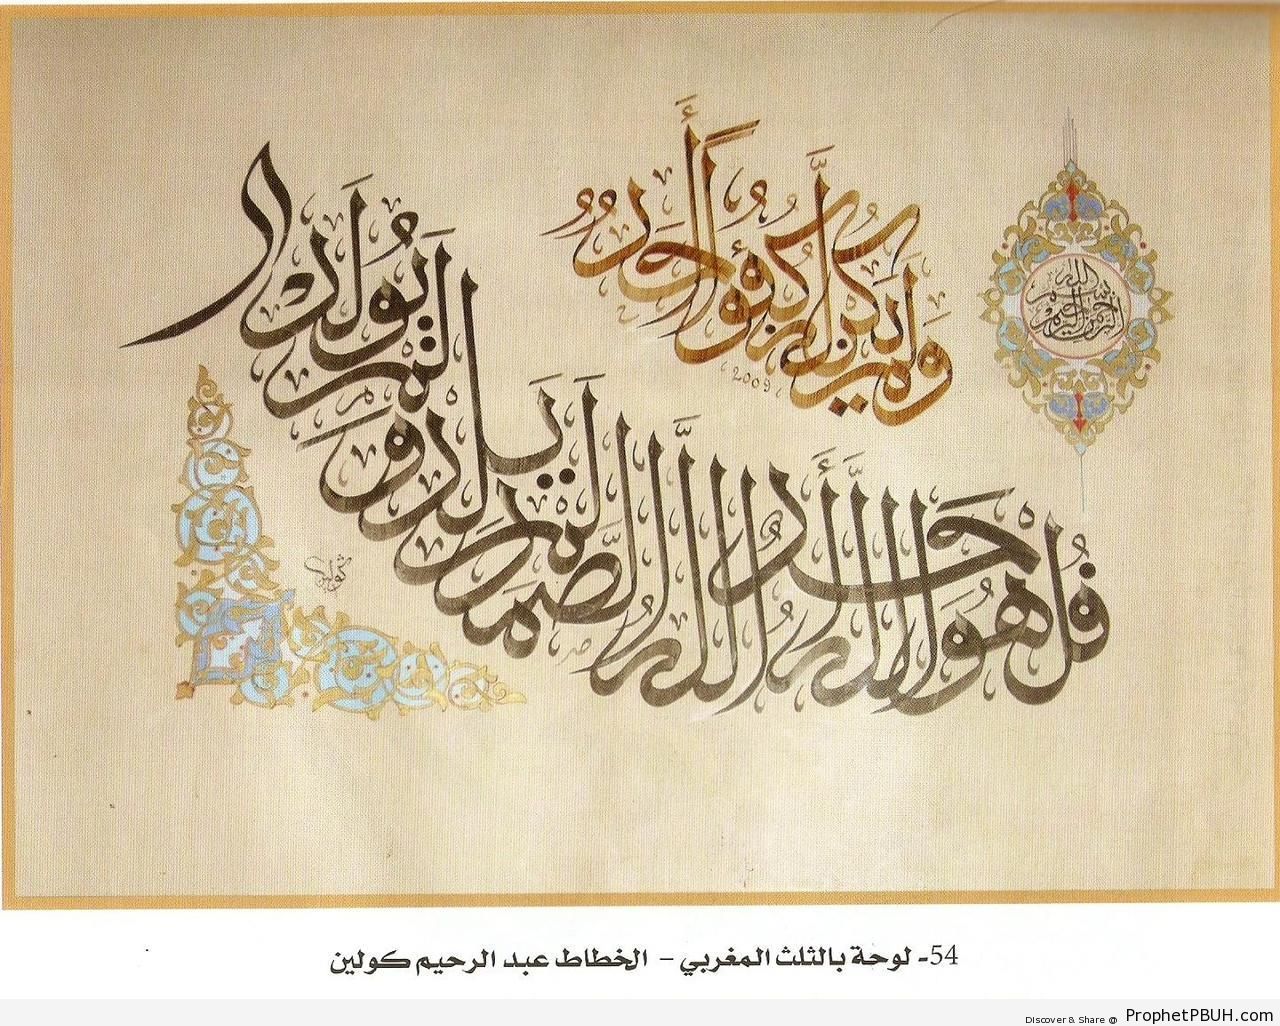 بسم الله الرحمن الرحيم
قُلْ هُوَ اللَّهُ أَحَدٌ اللَّهُ الصَّمَدُ لَمْ يَلِدْ وَلَمْ يُولَدْ
وَلَمْ يَكُن لَّهُ كُفُؤًا أَحَدٌ
2009
كولين
54- لوحة بالثلث المغربي – الخطاط عبد الرحيم كولين
Discover & Share @ ProphetPBUH.com